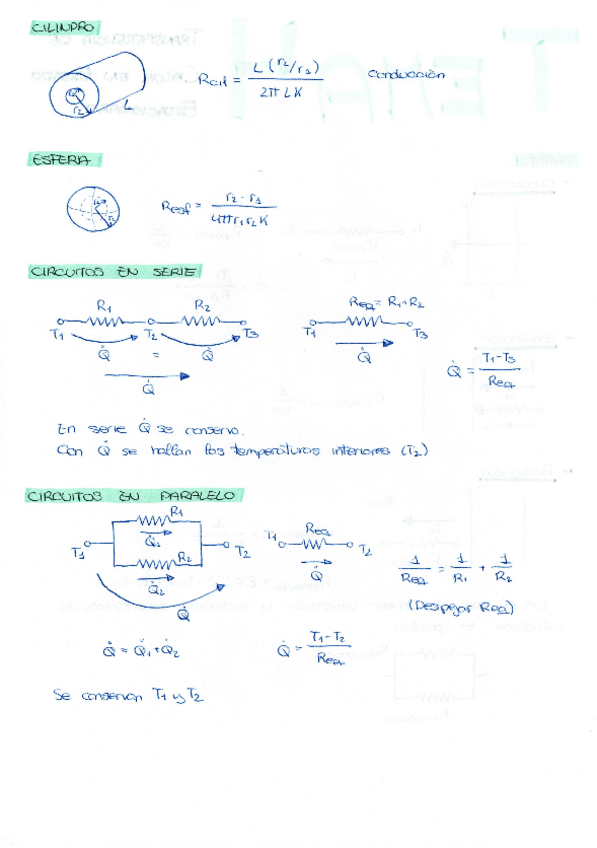 CILINDRO
r1 r2 L
Rcil = L (r2/r1) / 2π L K
Conducción
ESFERA
Resf = r2 - r1 / 4π r1 r2 K
CIRCUITOS EN SERIE
R1 R2 REQ = R1+R2
T1 T2 T3 T1 T3
Q̇ = Q̇ Q̇
Q̇
Q̇ = T1-T3 / REQ
En serie Q̇ se conserva.
Con Q̇ se hallan las temperaturas interiores (T2)
CIRCUITOS EN PARALELO
R1
T1 Q̇1 T2
R2
Q̇2
Q̇
T1 REQ T2
Q̇
1/REQ = 1/R1 + 1/R2
(Despejar REQ)
Q̇ = Q̇1+Q̇2
Q̇ = T1-T2 / REQ
Se conservan T1 y T2